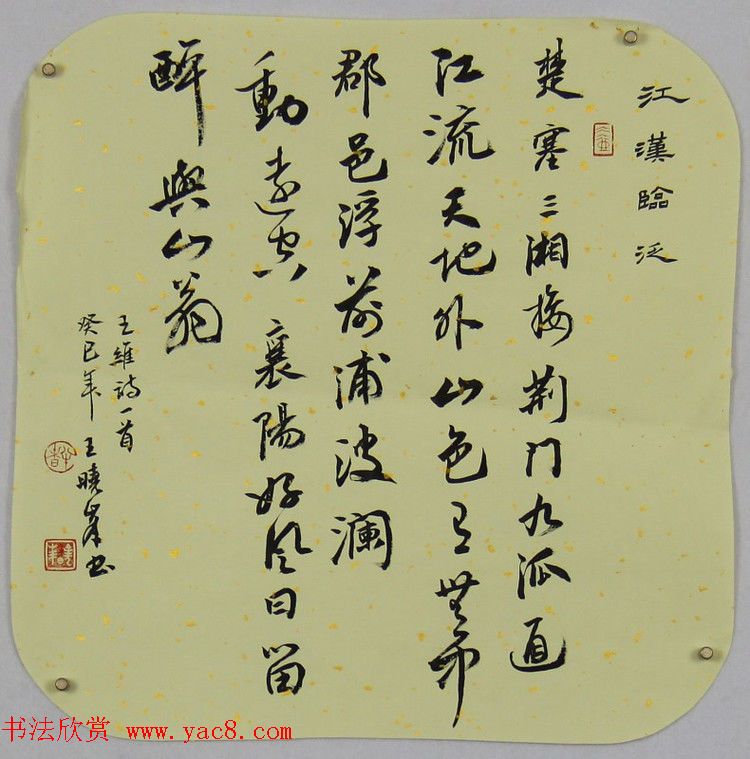 江漢臨泛
楚塞三湘接荆门九派通
江流天地外山色有無中
郡邑浮前浦波澜
動遠空襄陽好风日留
醉與山翁
王維诗一首
癸巳年王曉书
书法欣赏 www.yac8.com